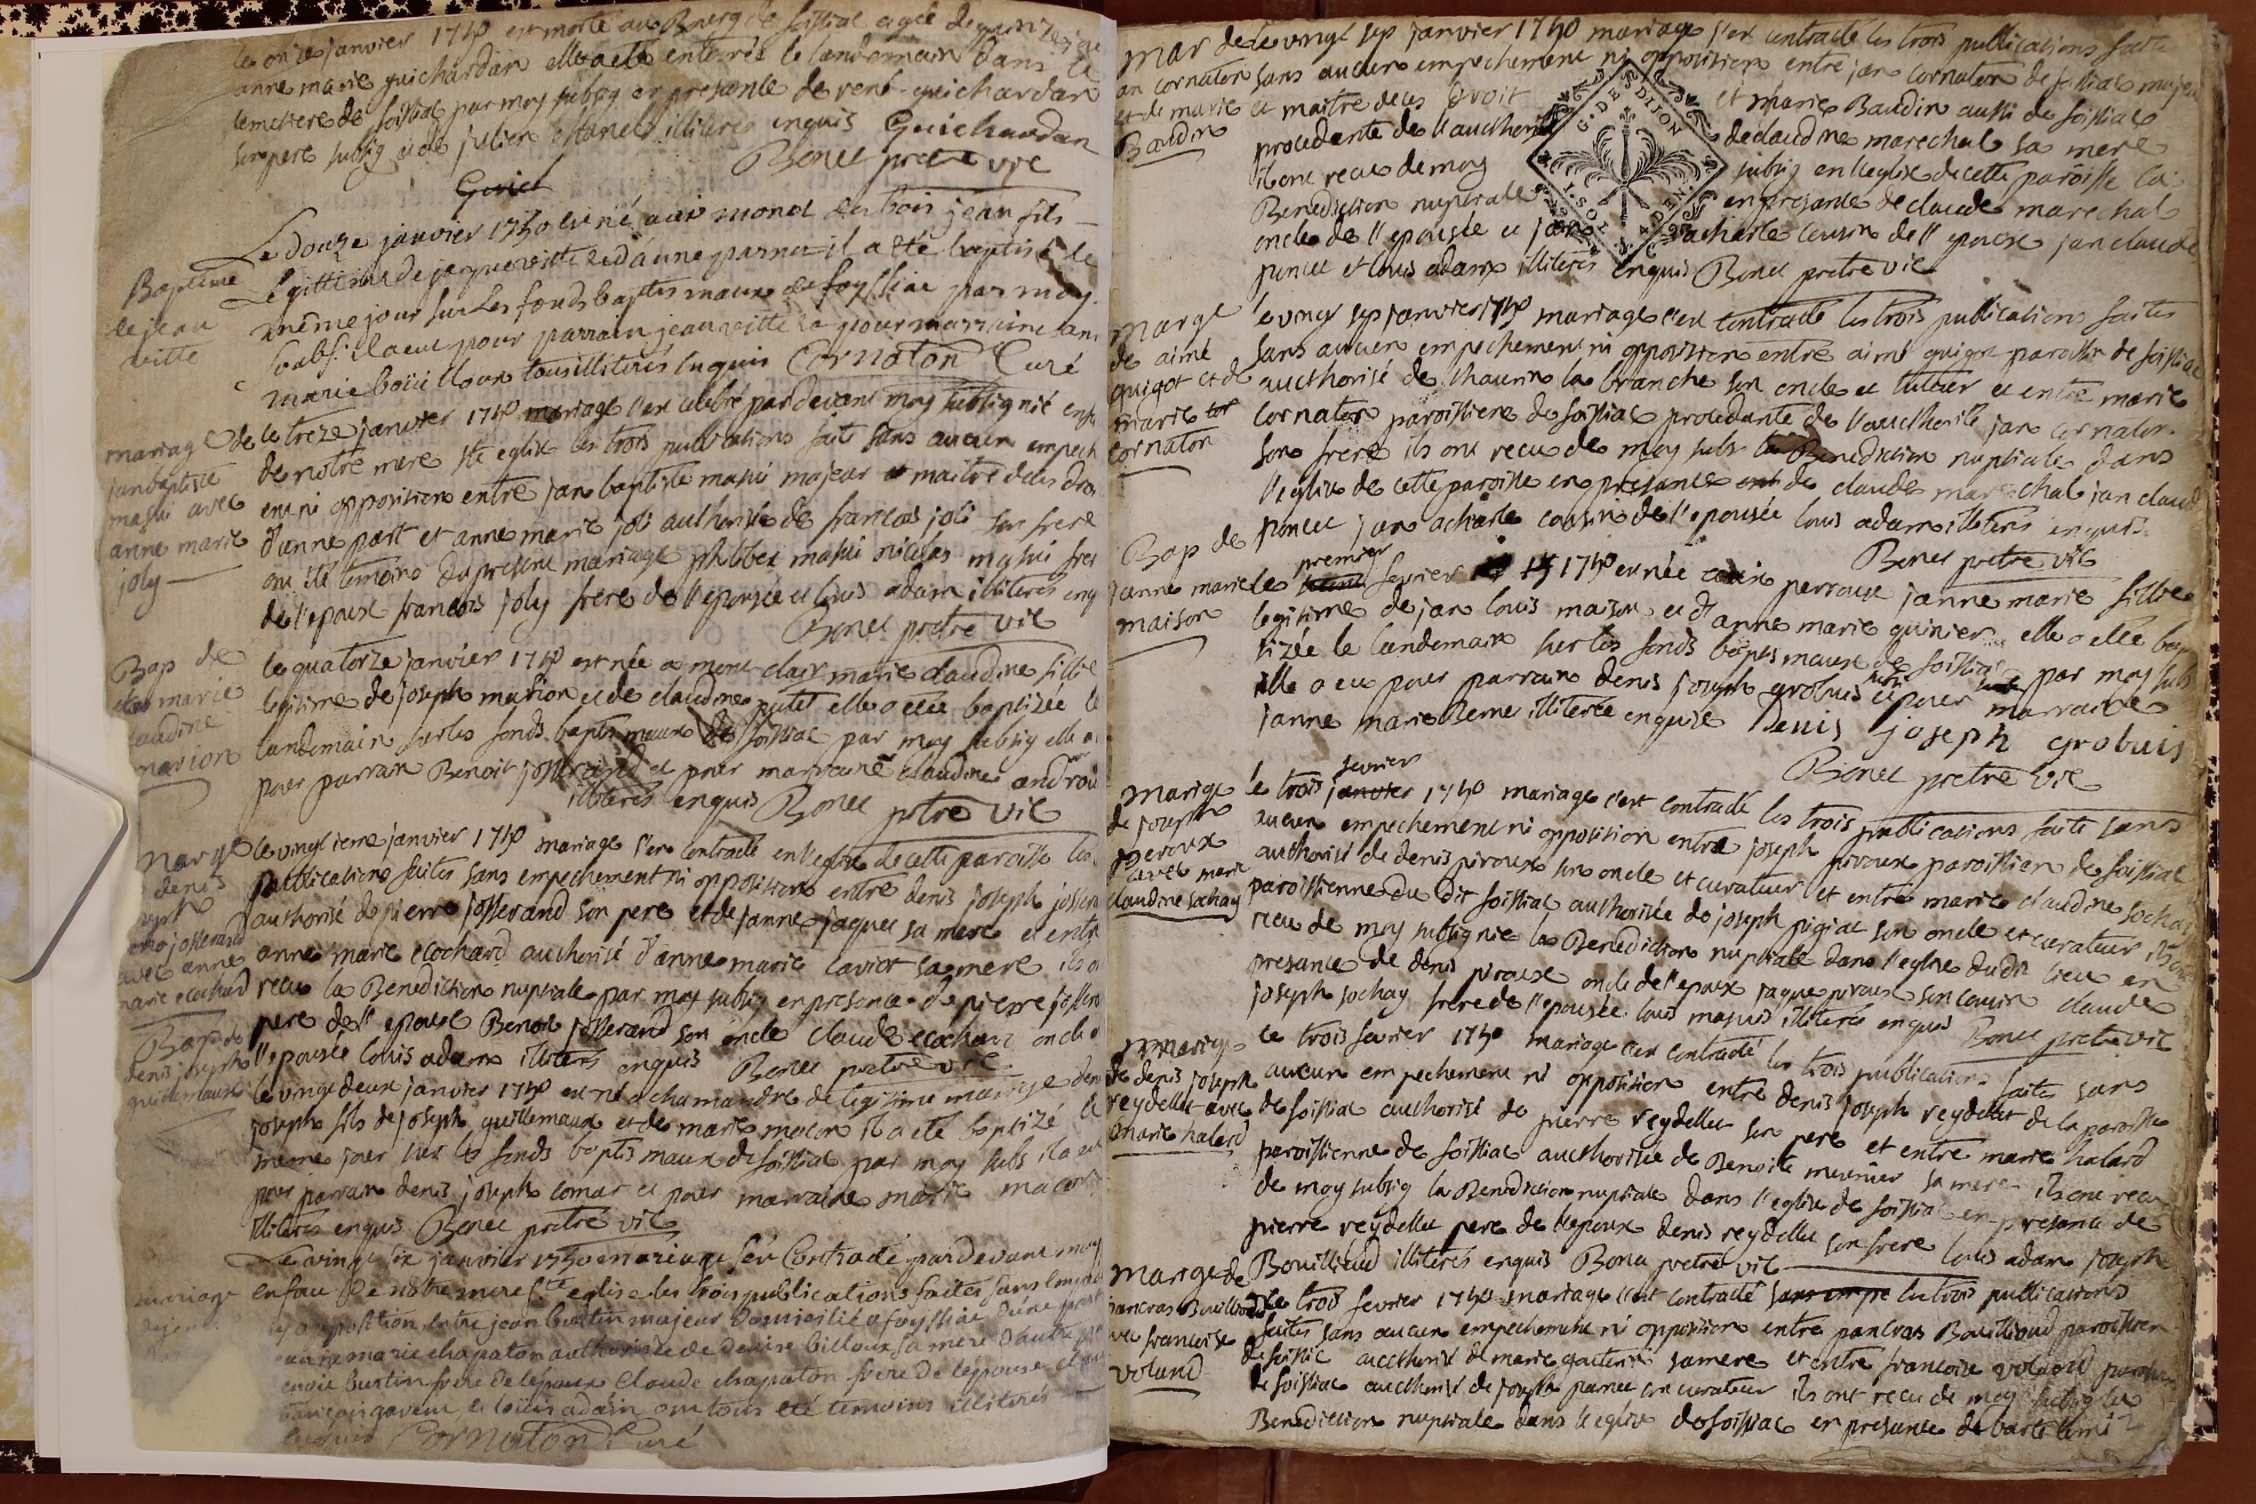 le onze janvier 1740 est morte au Bourg de soissiac agée de quinze
anne marie guichardan elle a eté enterrée le landemain dans le
semetiere de soissiac par moy subsig en presance de rené guichardan
son pere subsig et de julien illiteres enquis Guichardan
Bonet pretre vic
Guich
Baptême
de jean
vitte
Le douze janvier 1740 est né aux mont des bois jean fils
Legittime de jaque vitte et d'anne parnet il a été baptisé le
même jour sur Les fonds baptismaux de foyssiac par moy
soubs: il a eu pour parrain jean vitte et pour marraine
marie boüilloux tous illitérés enquis Cornaton Curé
mariage de
jan baptiste
masui avec
anne marie
joly
le treze janvier 1740 mariage s'est celebré par devant moy subsignié
de notre mere ste eglise les trois publications faits sans aucun empech
ent ni opposition entre jan baptiste masui majeur et maitre de ses droi
d'anne part et anne marie joli authorisée de francois joli son frere
ont été temoins du present mariage philibert masui nicolas masui frer
de l'epoux francois joly frere de l'epousée et louis adam illiteres enq
Bonet pretre vic
Bap de
marie
claudine
marion
le quatorze janvier 1740 est née a mont clair marie claudine fillie
legitime de joseph marion et de claudine putet elle a etée baptizée le
landemain sur les fonds baptismaux de soissiac par moy subsig elle a
pour parrain Benoit josserand et pour marraine claudine
illiteres enquis Bonet pretre vic
Marge
denis
joseph
josserand
avec anne
marie ecochard
le vingtieme janvier 1740 mariage s'est contracté en l'eglise de cette paroisse les
publications faites sans empechement ni opposition entre denis joseph josseran
authorisé de pierre josserand son pere et de janne jaquet sa mere et entre
anne marie ecochard authorisé d'anne marie cavior sa mere ils
recu la Benediction nuptiale par moy subsig en presance de pierre josseran
pere de l'epoux Benoit josserand son oncle claude ecochard oncle
l'epousée louis adam illiteres enquis Bonet pretre vic
Bap de
denis joseph
guillemaux
le vingt deux janvier 1740 est né a chamandre de legitime mariage deni
joseph fils de joseph guillemaux et de marie macon il a eté baptizé le
meme jour sur les fonds baptismaux de soissiac par moy subs il a eu
pour parrain denis joseph comar et pour marraine marie macon
illiteres enquis Bonet pretre vic
mariage
Le vingt six janvier 1740 mariage s'est Contracté par devant moy
en face De nôtre mere ste eglise les trois publications faites sans
ny opposition entre jean buttin majeur Domicilié a foyssiac D'une part
anne marie chapaton authorisée de denise billoux sa mere D'autre
buttin frere de lepoux Claude chapaton frere De lepouse
et loüis adam ont tous été temoins illitérés
enquis Cornaton Curé
Mar de
jan cornaton
et de marie
Baudin
le vingt sep janvier 1740 mariage s'est contracté les trois publications faite
sans aucun empechement ni opposition entre jan cornaton de soissiac majeur
et maitre de ses Droit et marie Baudin aussi de soissiac
procedante de l'aucthorité de claudine marechal sa mere
ils ont recu de moy subsig en l'eglise de cette paroisse la
Benediction nuptiale en presance de claude marechal
oncle de l'epousée et jan acharle cousin de l'epoux jan claude
poncet et louis adam illiteres enquis Bonet pretre vic
G. DE. DIJON
Marge
de aimé
guigot et de
marie cor
cornaton
le vingt sep janvier 1740 mariage s'est contracté les trois publications faites
sans aucun empechement ni opposition entre aimé guigot paroissien de soissiac
aucthorisé de la branche son oncle et tuteur et entre marie
cornaton paroissiene de soissiac procedante de l'aucthorité jan cornaton
son frere ils ont recu de moy subs la Benediction nuptiale dans
l'eglise de cette paroisse en presance de claude marechal jan claud
poncet jan acharle cousin de l'epousée louis adam illiteres enquis
Bonet pretre vic
Bap de
janne marie
maison
le premier fevrier 1740 est née perroux janne marie fillie
legitime de jan louis maison et d'anne marie guinier elle a été bap
tizée le landemain sur les fonds baptismaux de soissiac par moy subs
elle a eu pour parrain denis joseph grobuis et pour marraine
janne marie Berne illiterée enquise Denis joseph grobuis
Bonet pretre vic
Marige
de joseph
peroux
avec marie
claudine sochay
le trois janvier fevrier 1740 mariage s'est contracté les trois publications faite sans
aucun empechement ni opposition entre joseph piroux paroissien de soissiac
authorisé de denis piroux son oncle et curateur et entre marie claudine sochay
paroissienne du dit soissiac authorisée de joseph pigiat son oncle et curateur ils ont
recu de moy subsignié la Benediction nuptiale dans l'eglise du dit lieu en
presance de denis piroux oncle de l'epoux jaque piroux son cousin claude
joseph sochay frere de l'epousée louis masuis illiteres enquis Bonet pretre vic
Mariage
de denis joseph
reydellet avec
marie halard
le trois fevrier 1740 mariage s'est contracté les trois publications faites sans
aucun empechement ni opposition entre denis joseph reydellet de la paroisse
de soissiac aucthorisé de pierre reydellet son pere et entre marie halard
paroissienne de soissiac aucthorisée de Benoite meunier sa mere ils ont recu
de moy subsig la Benediction nuptiale dans l'eglise de soissiac en presance de
pierre reydellet pere de l'epoux denis reydellet son frere louis adam joseph
Bouilliud illiteres enquis Bonet pretre vic
Marige de
pancras Bouilloud
avec francoise
voland
le trois fevrier 1740 mariage s'est contracté sans empe les trois publications
faites sans aucun empechement ni opposition entre pancras Bouillioud paroissien
de soissic aucthorisé de marie gauterin sa mere et entre francoise voland paroissien
de soissiac aucthorisé de joseph parnet son curateur ils ont recu de moy subsig la
Benediction nuptiale dans l'eglise de soissiac en presance de bartelemi